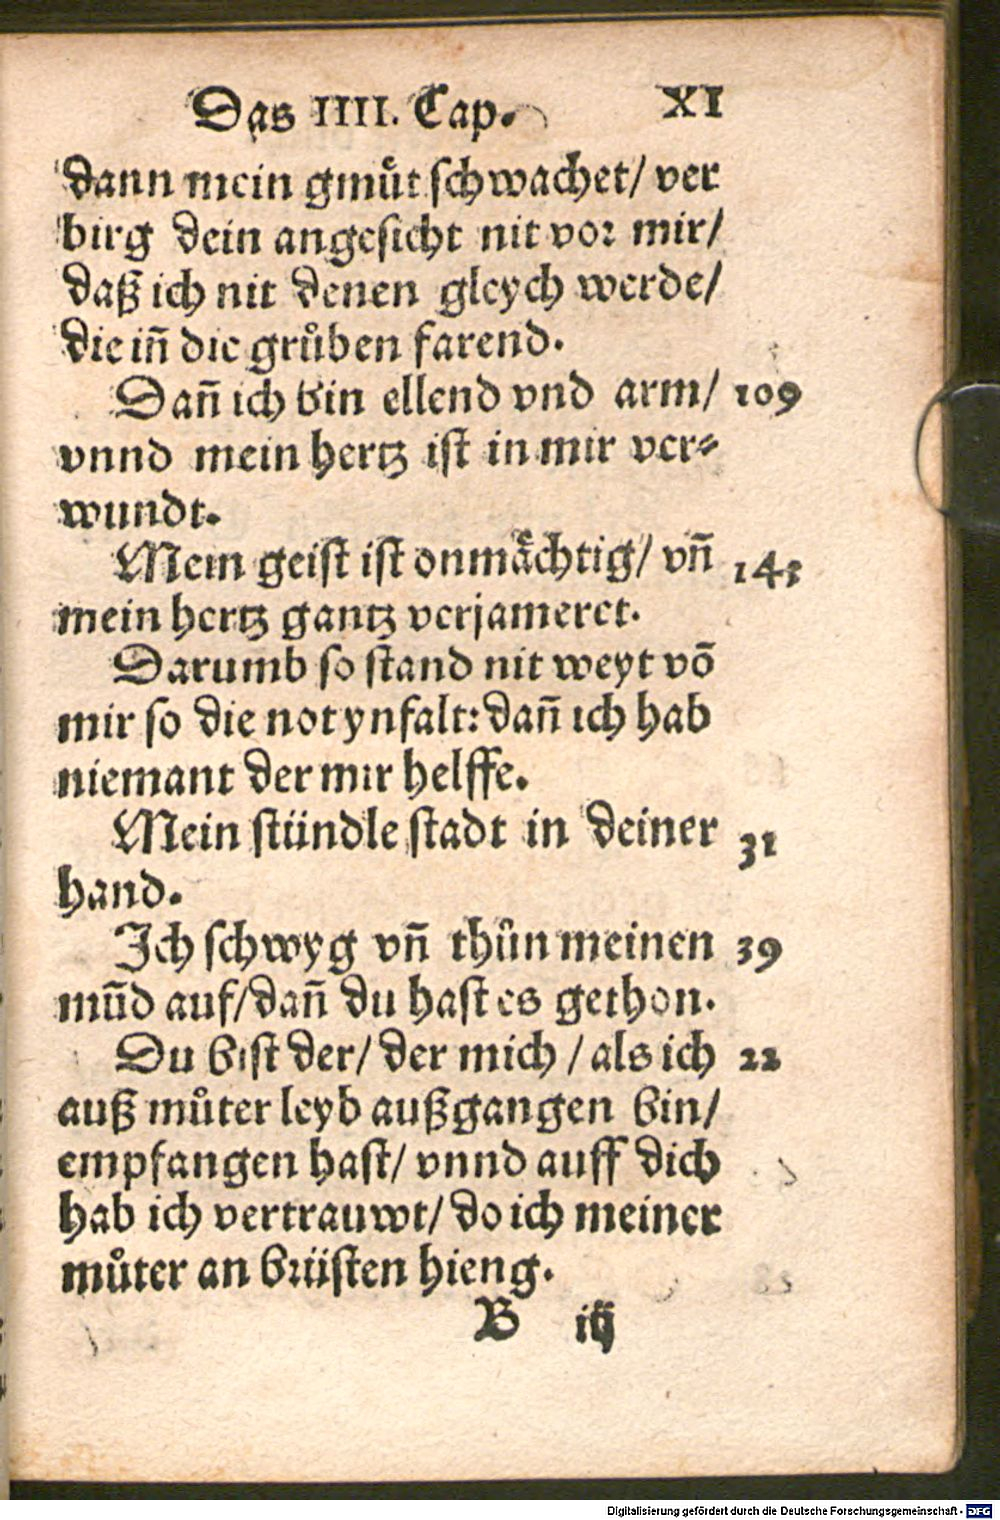 Das IIII. Cap. XI
dann mein gmuͤt schwachet/ ver
birg dein angesicht nit vor mir/
daß ich nit denen gleych werde/
die iñ die gruͦben farend.
Dañ ich bin ellend vnd arm/ 109
vnnd mein hertz ist in mir ver⸗
wundt.
Mein geist ist onmaͤchtig/ vñ 143
mein hertz gantz verjameret.
Darumb so stand nit weyt võ
mir so die not ynfalt: dañ ich hab
niemant der mir helffe.
Mein stündle stadt in deiner 31
hand.
Ich schwyg vñ thuͦn meinen 39
mũd auf/ dañ du hast es gethon.
Du bist der/ der mich / als ich 22
auß muͦter leyb außgangen bin/
empfangen hast/ vnnd auff dich
hab ich vertrauwt/ do ich meiner
muͦter an brüsten hieng.
B iij
Digitalisierung gefördert durch die Deutsche Forschungsgemeinschaft - DFG